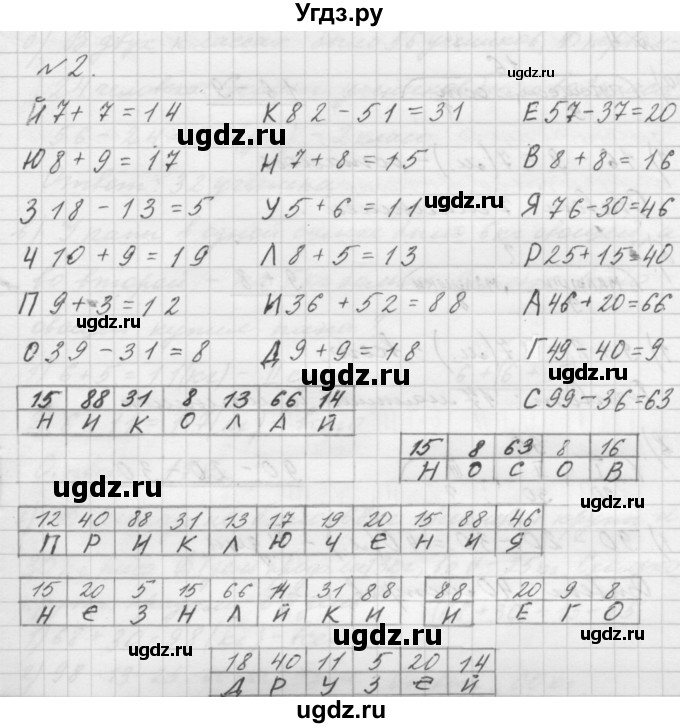 Угдз.ру
№ 2.
Й 7 + 7 = 14 К 82 - 51 = 31 Е 57 - 37 = 20
Ю 8 + 9 = 17 Н 7 + 8 = 15 В 8 + 8 = 16
З 18 - 13 = 5 У 5 + 6 = 11 Я 76 - 30 = 46
Ч 10 + 9 = 19 Л 8 + 5 = 13 Р 25 + 15 = 40
П 9 + 3 = 12 И 36 + 52 = 88 А 46 + 20 = 66
О 39 - 31 = 8 Д 9 + 9 = 18 Г 49 - 40 = 9
С 99 - 36 = 63
15 88 31 8 13 66 14
Н И К О Л А Й
15 8 63 8 16
Н О С О В
12 40 88 31 13 17 19 20 15 88 46
П Р И К Л Ю Ч Е Н И Я
15 20 5 15 66 14 31 88 88 20 9 8
Н Е З Н А Й К И И Е Г О
18 40 11 5 20 14
Д Р У З Е Й
ugdz.ru
ugdz.ru
ugdz.ru
ugdz.ru
ugdz.ru
ugdz.ru
ugdz.ru
ugdz.ru
ugdz.ru
ugdz.ru
ugdz.ru
ugdz.ru